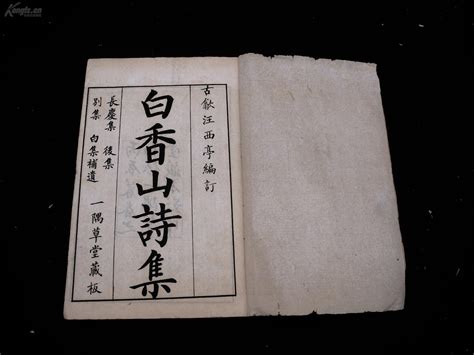 古歙汪西亭編訂
白香山詩集
長慶集 後集
別集 白集補遺
一隅草堂藏板
Kongfz.cn